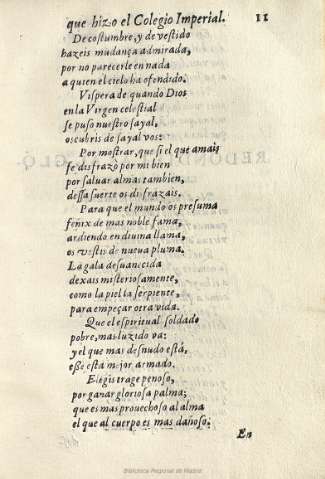 que hizo el Colegio Imperial. 11
De costumbre, y de vestido
hazeis mudança admirada,
por no parecerle en nada
a quien el cielo ha ofendido.
Vispera de quando Dios
en la Virgen celestial
se puso nuestro sayal,
os cubris de sayal vos:
Por mostrar, que si el que amais
se disfrazò por mi bien
por saluar almas tambien,
dessa suerte os disfrazais.
Para que el mundo os presuma
fenix de mas noble fama,
ardiendo en diuina llama,
os vestis de nueua pluma.
La gala desuanecida
dexais misteriosamente,
como la piel la serpiente,
para empeçar otra vida.
Que el espiritual soldado
pobre, mas luzido va:
y el que mas desnudo està,
esse esta mejor armado.
Elegis trage penoso,
por ganar gloriosa palma;
que es mas prouechoso al alma
el que al cuerpo es mas dañoso.
En
Biblioteca Regional de Madrid